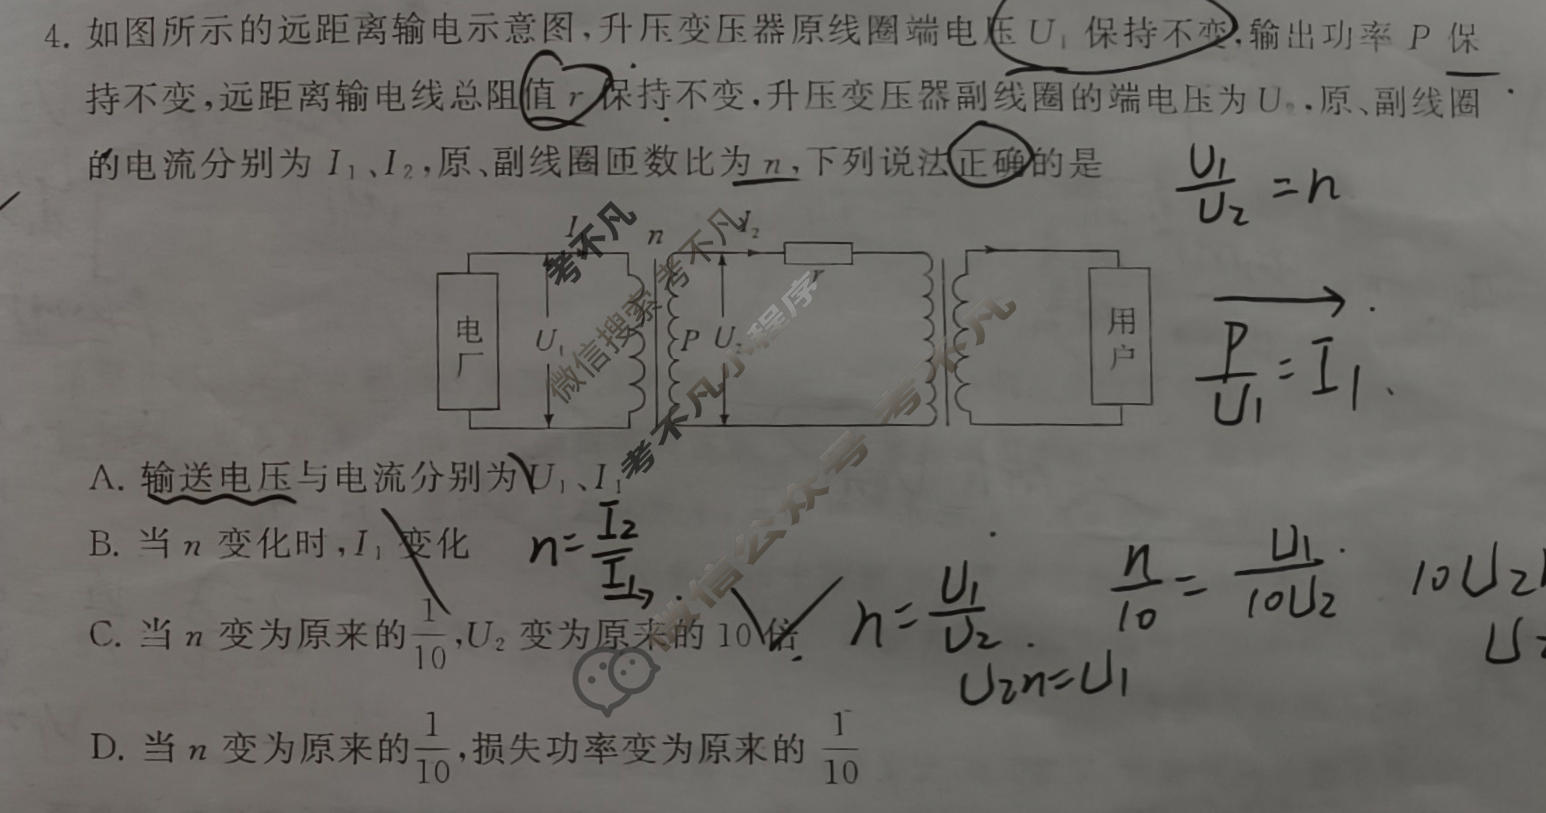 4. 如图所示的远距离输电示意图,升压变压器原线圈端电压U₁保持不变,输出功率 P 保
持不变,远距离输电线总阻值 r 保持不变,升压变压器副线圈的端电压为U₂,原、副线圈
的电流分别为 I₁、I₂,原、副线圈匝数比为 n,下列说法正确的是
U₁/U₂ = n
I n I₂
r
电厂 U₁ P U₂ 用户
P/U₁ = I₁
考不凡
微信搜索 考不凡
考不凡小程序
微信公众号 考不凡
A. 输送电压与电流分别为U₁、I₁
B. 当 n 变化时,I₁ 变化
n = I₂/I₁
C. 当 n 变为原来的 1/10,U₂ 变为原来的 10 倍
n = U₁/U₂
n/10 = U₁/10U₂
10U₂
U₂n = U₁
D. 当 n 变为原来的 1/10,损失功率变为原来的 1/10